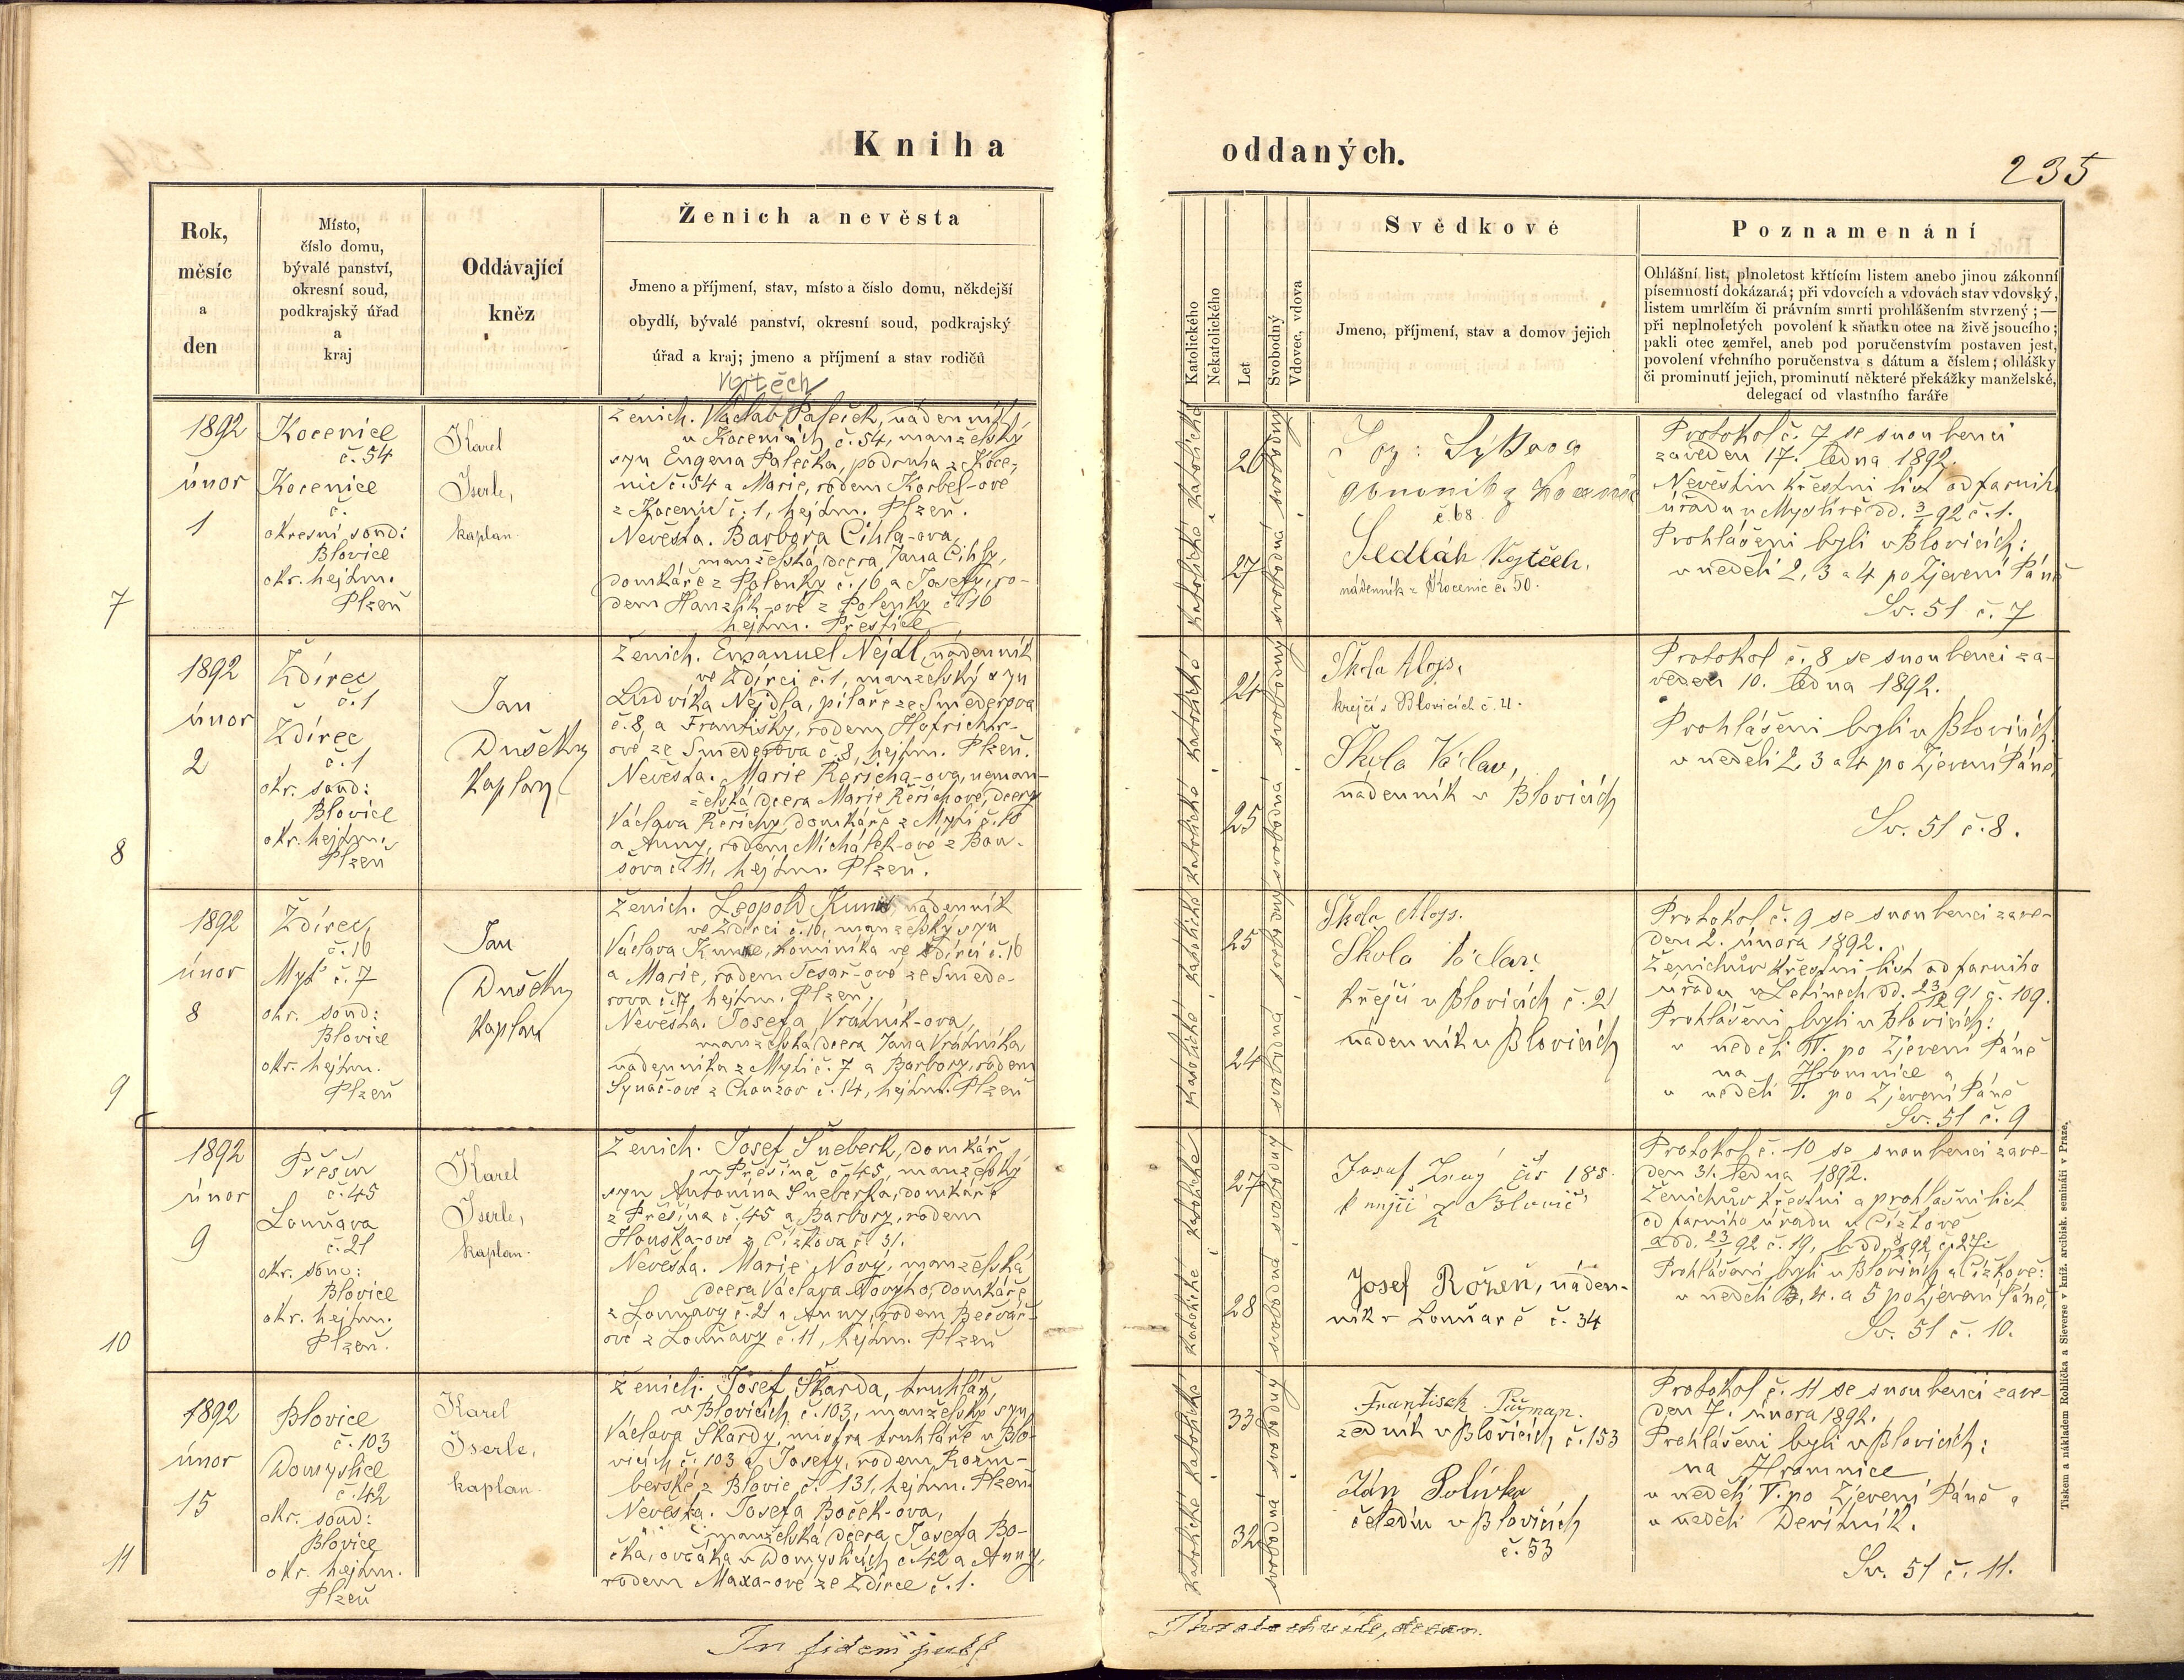 Kniha
oddaných.
235
Rok,
měsíc
a
den
Místo,
číslo domu,
bývalé panství,
okresní soud,
podkrajský úřad
a
kraj
Oddávající
kněz
Ženich a nevěsta
Jmeno a příjmení, stav, místo a číslo domu, někdejší
obydlí, bývalé panství, okresní soud, podkrajský
úřad a kraj; jmeno a příjmení a stav rodičů
Katolického
Nekatolického
Let
Svobodný
Vdovec, vdova
Svědkové
Jmeno, příjmení, stav a domov jejich
Poznamenání
Ohlášní list, plnoletost křtícím listem anebo jinou zákonní
písemností dokázaná; při vdovcích a vdovách stav vdovský,
listem umrlčím či právním smrti prohlášením stvrzený; —
při neplnoletých povolení k sňatku otce na živě jsoucího;
pakli otec zemřel, aneb pod poručenstvím postaven jest,
povolení vrchního poručenstva s dátum a číslem; ohlášky
či prominutí jejich, prominutí některé překážky manželské,
delegací od vlastního faráře
7
1892
únor
1
Kocenice
č. 54
Kocenice
č.
okresní soud:
Blovice
okr. hejtm.
Plzeň
Karel
Iserle,
kaplan.
Vojtěch
Ženich. Václav Paleček, nádenník
v Kocenicích č. 54, manželský
syn Eugena Palečka, podruha z Koce-
nic č. 54 a Marie, rodem Korbel-ové
z Kocenic č. 1, hejtm. Plzeň.
Nevěsta. Barbora Cihla-ova,
manželská dcera Jana Cihly,
domkáře z Polenky č. 16 a Josefy, ro-
dem Hanzlík-ové z Polenky č. 16
hejtm. Přeštice
26
27
Sýkora
z Kocenic
č. 68.
Sedlák Vojtěch,
nádenník z Kocenic č. 50.
Protokol č. 7 se snoubenci
zaveden 17. ledna 1892.
Nevěstin křestní list od farního
úřadu v Myslívě dd. 3/1 92 č. 1.
Prohlášeni byli v Blovicích:
v neděli 2, 3 a 4 po Zjevení Páně
Sv. 51 č. 7
8
1892
únor
2
Ždírec
č. 1
Ždírec
č. 1
okr. soud:
Blovice
okr. hejtm.
Plzeň
Jan
Dušek,
kaplan
Ženich. Emanuel Nejdl, nádenník
ve Ždírci č. 1, manželský syn
Ludvíka Nejdla, pilaře ze Smederova
č. 8, a Františky, rodem Hofrichtr-
ové ze Smederova č. 8, hejtm. Plzeň.
Nevěsta. Marie Řeřicha-ova, neman-
želská dcera Marie Řeřichové, dcery
Václava Řeřichy, domkáře z Mytí č. 10
a Anny, rodem Michálek-ové z Bou-
šova č. 11, hejtm. Plzeň.
24
25
Škola Alojs,
krejčí v Blovicích č. 21.
Škola Václav,
nádenník v Blovicích
Protokol č. 8 se snoubenci za-
veden 10. ledna 1892.
Prohlášeni byli v Blovicích
v neděli 2, 3 a 4 po Zjevení Páně
Sv. 51 č. 8.
9
1892
únor
8
Ždírec
č. 16
Myť č. 7
okr. soud:
Blovice
okr. hejtm.
Plzeň
Jan
Dušek,
kaplan
Ženich. Leopold nádenník
ve Ždírci č. 16, manželský syn
Václava kominíka ve Ždírci č. 16
a Marie, rodem Tesař-ové ze Smede-
rova č. 17, hejtm. Plzeň.
Nevěsta. Josefa Vrátník-ova,
manželská dcera Jana Vrátníka
nádenníka z Mytí č. 7 a Barbory, rodem
Synáč-ové z Chouzov č. 14, hejtm. Plzeň
25
24
Škola Alojs.
Škola Václav.
krejčí v Blovicích č. 21
nádenník v Blovicích
Protokol č. 9 se snoubenci zave-
den 2. února 1892.
Ženichův křestní list od farního
úřadu v Letinech dd. 23/12 91 č. 109.
Prohlášeni byli v Blovicích:
v neděli IV. po Zjevení Páně
na Hromnice a
v neděli V. po Zjevení Páně
Sv. 51 č. 9
10
1892
únor
9
Přešín
č. 45
Louňava
č. 21
okr. soud:
Blovice
okr. hejtm.
Plzeň.
Karel
Iserle,
kaplan.
Ženich. Josef Šneberk, domkář
v Přešíně č. 45, manželský
syn Antonína Šneberka, domkáře
z Přešína č. 45 a Barbory, rodem
Houška-ové z Čížkova č. 31.
Nevěsta. Marie Nový, manželská
dcera Václava Nového, domkáře
z Louňavy č. 21 a Anny, rodem Bečvář-
ové z Louňavy č. 11, hejtm. Plzeň
27
28
Josef čís 188.
krejčí z Blovic
Josef Rožeň, náden-
ník v Louňavě č. 34
Protokol č. 10 se snoubenci zave-
den 31. ledna 1892.
Ženichův křestní a prohlašní list
od farního úřadu v Čížkově
a dd. 23/1 92 č. 19, b dd. 8/2 92 č. 27:
Prohlášeni byli v Blovicích a Čížkově:
v neděli 3, 4. a 5 po Zjevení Páně,
Sv. 51 č. 10.
11
1892
únor
15
Blovice
č. 103
Domyslice
č. 42
okr. soud:
Blovice
okr. hejtm.
Plzeň
Karel
Iserle,
kaplan.
Ženich. Josef Škarda, truhlář,
v Blovicích č. 103, manželský syn
Václava Škardy, mistra truhláře v Blo-
vicích č. 103 a Josefy, rodem Rožm-
berské z Blovic č. 131, hejtm. Plzeň.
Nevěsta. Josefa Boček-ova,
manželská dcera Josefa Bo-
čka, ovčáka v Domyslicích č. 42 a Anny,
rodem Maxa-ové ze Ždírce č. 1.
33
32
František
zedník v Blovicích č. 153
Ján Polívka
čeledín v Blovicích
č. 53
Protokol č. 11 se snoubenci zave-
den 7. února 1892.
Prohlášeni byli v Blovicích:
na Hromnice
v neděli V. po Zjevení Páně a
v neděli Devítník.
Sv. 51 č. 11.
In fidem
děkan.
Tiskem a nákladem Rohlíčka a Sieverse v kníž. arcibisk. semináři v Praze.